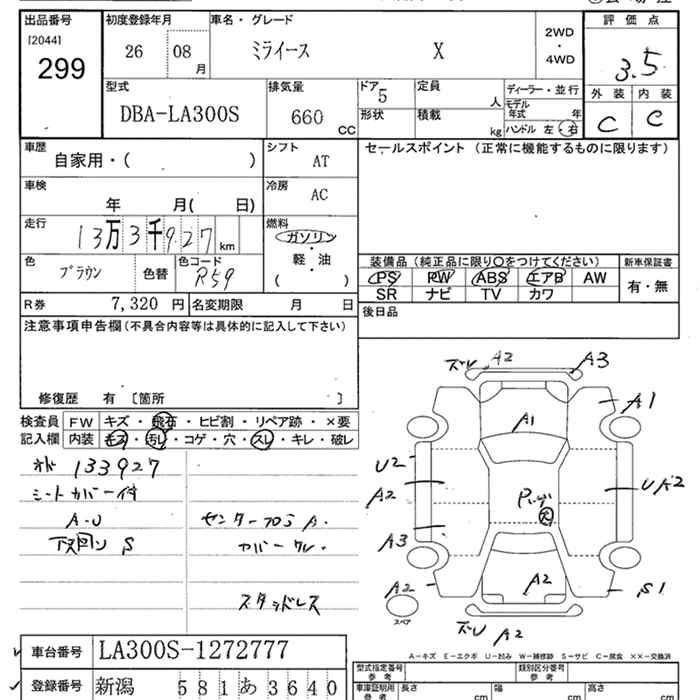 出品番号 初度登録年月 車名・グレード 評価点
[2044]
299 26 08月 ミライース X 2WD・4WD 3.5
型式 排気量 ドア 定員 ディーラー・並行 外装 内装
DBA-LA300S 660 CC 5 人 モデル年式 年 C C
形状 積載 kg ハンドル 左・右
車歴 シフト セールスポイント (正常に機能するものに限ります)
自家用・( ) AT
車検 冷房
年 月( 日) AC
走行 燃料
13万3千927 km ガソリン
軽・油
( )
色 色替 色コード 装備品 (純正品に限り○をつけてください) 新車保証書
ブラウン R59 PS PW ABS エアB AW 有・無
SR ナビ TV カワ
R券 7,320 円 名変期限 月 日 後日品
注意事項申告欄 (不具合内容等は具体的に記入して下さい)
修復歴 有 [箇所 ]
検査員 FW キズ・飛石・ヒビ割・リペア跡・×要
記入欄 内装 キズ・汚レ・コゲ・穴・スレ・キレ・破レ
133927
シートカバー付
下回り S
センターフロア A.
スタッドレス
A2 A3
A1
A1
U2
A2
A3
A2
A2
S1
A2
スペア
A-キズ E-エクボ U-凹み W-補修跡 S-サビ C-腐食 ××-交換済
車台番号 LA300S-1272777 型式指定番号 参考 類別区分番号 参考
登録番号 新潟 581 あ 3640 車庫証明用 参考 長さ cm 幅 cm 高さ cm